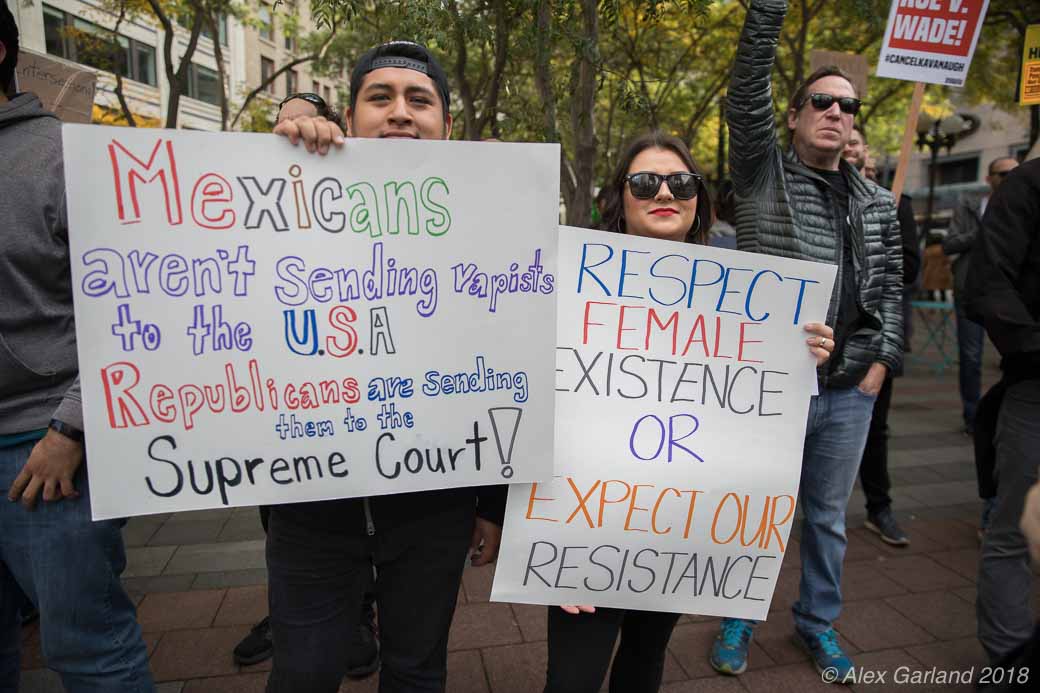 Mexicans
aren't sending rapists
to the U.S.A
Republicans are sending
them to the
Supreme Court!
RESPECT
FEMALE
EXISTENCE
OR
EXPECT OUR
RESISTANCE
WADE!
#CANCELKAVANAUGH
© Alex Garland 2018